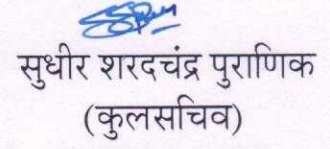 सुधीर शरदचंद्र पुराणिक
(कुलसचिव)